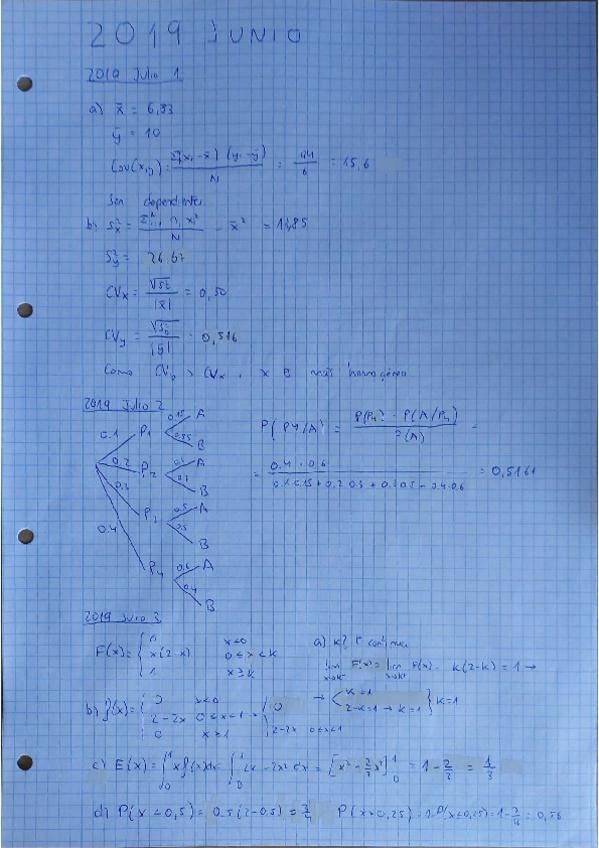 2019 JUNIO
2019 Julio 1
a) x̄ = 6,83
ȳ = 10
Cov(x,y) = Σ(xᵢ-x̄)(yᵢ-ȳ) / N = 94/6 = 15,6
Son dependientes
b) Sx² = Σ nᵢ xᵢ² / N - x̄² = 11,85
Sy² = 26,67
CVx = √Sx² / |x̄| = 0,50
CVy = √Sy² / |ȳ| = 0,516
Como CVy > CVx, x es más homogénea
2019 Julio 2
0.1 P1 0.15 A 0.85 B
0.2 P2 A B
0.3 P3 0.5 A 0.5 B
0.4 P4 0.6 A 0.4 B
P(P4/A) = P(P4) · P(A/P4) / P(A) =
= 0.4 · 0.6 / = 0,516
2019 Julio 3
F(x) = { 0 x<0
x(2-x) 0≤x<K
1 x≥K
a) K? F continua
lim F(x) = lim F(x) · K(2-K) = 1 →
→ K=1
2-K=1 → K=1 } K=1
b) f(x) = { 0 x<0
2-2x 0≤x<1 → { 0
0 x≥1 2-2x 0≤x<1
c) E(x) = ∫₀¹ x f(x)dx = ∫₀¹ 2x - 2x² dx = [x² - 2/3 x³]₀¹ = 1 - 2/3 = 1/3
d) P(x<0,5) = 0.5(2-0,5) = 3/4 P(x>0,25) = 1-P(x≤0,25) = 0,56